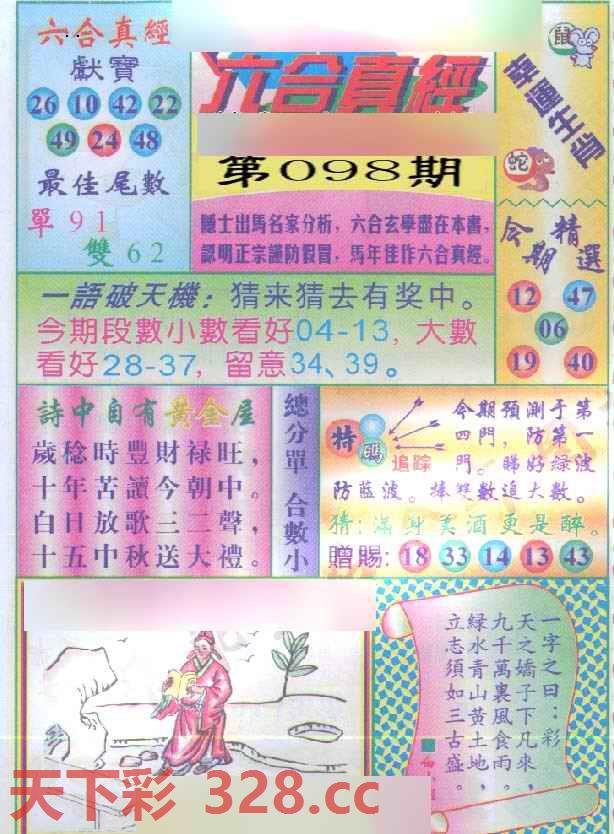 六合真經
獻寶
26 10 42 22
49 24 48
最佳尾數
單 91
雙 62
六合真經
第098期
隱士出馬名家分析，六合玄學盡在本書，
認明正宗謹防假冒，馬年佳作六合真經。
鼠
幸運生肖
蛇
今期精選
12 47
06
19 40
一語破天機：猜来猜去有奖中。
今期段數小數看好04-13，大數
看好28-37，留意34、39。
詩中自有黃金屋
歲稔時豐財祿旺，
十年苦讀今朝中。
白日放歌三二聲，
十五中秋送大禮。
總分單 合數小
特碼
追踪
今期預測于第
四門，防第一
門。睇好绿波
防藍波。捧雙數追大數。
猜：滿身美酒更是醉。
贈賜：18 33 14 13 43
一字之曰：彩
天之嬌子下凡來，
九千萬裏風食雨，
緑水青山黃土地，
立志須如三古盛。
天下彩 328.cc